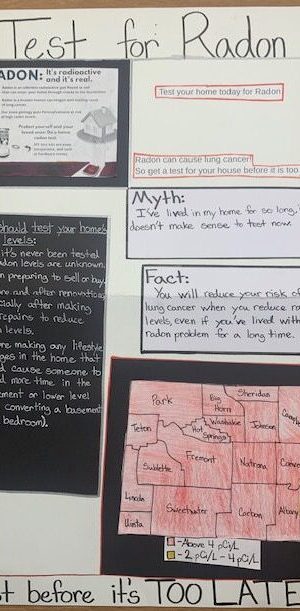 Test for Radon
RADON: It's radioactive
and it's real.
Test your home today for Radon
Radon can cause lung cancer!
So get a test for your house before it is too
Myth:
I've lived in my home for so long,
doesn't make sense to test now.
Fact:
You will reduce your risk of
lung cancer when you reduce ra
levels, even if you've lived with
radon problem for a long time.
should test your home's
levels:
it's never been tested
don levels are unknown.
n preparing to sell or buy.
ore and after renovations
cially after making
repairs to reduce
levels.
ore making any lifestyle
ges in the home that
d cause someone to
d more time in the
ment or lower level
converting a basement
bedroom).
Park
Big
Horn
Sheridan
Teton
Hot
Springs
Washakie
Johnson
Sublette
Fremont
Natrona
Conver
Lincoln
Uinta
Sweetwater
Carbon
Albany
- Above 4 pCi/L
- 2 pCi/L - 4 pCi/L
t before it's TOO LATE